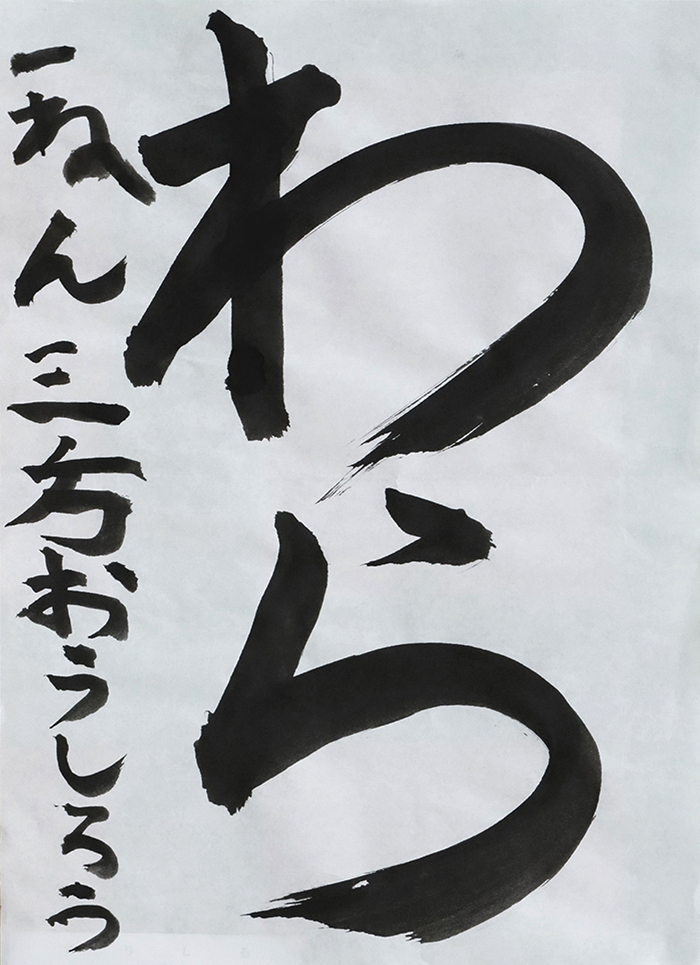 わら
一ねん三方おうしろう